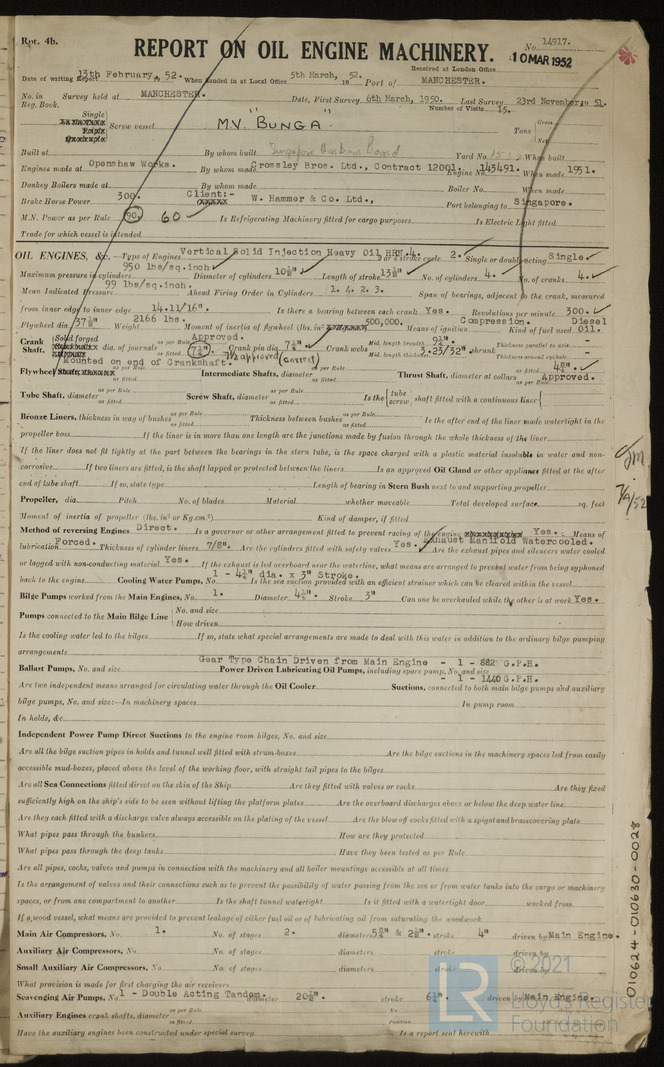 Rpt. 4b.
No. 14917.
REPORT ON OIL ENGINE MACHINERY.
Received at London Office 10 MAR 1952
Date of writing Report 13th February, 19 52. When handed in at Local Office 5th March, 19 52. Port of MANCHESTER.
No. in Reg. Book. Survey held at MANCHESTER. Date, First Survey 6th March, 1950. Last Survey 23rd November, 19 51.
Number of Visits 15.
Single Screw vessel M.V. "BUNGA" Tons Gross Net
Built at By whom built Singapore Harbour Board Yard No. When built
Engines made at Openshaw Works. By whom made Crossley Bros. Ltd., Contract 12001. Engine No. 143491. When made 1951.
Donkey Boilers made at By whom made Boiler No. When made
Brake Horse Power 300. Client:- W. Hammer & Co. Ltd., Port belonging to Singapore.
M.N. Power as per Rule 90. 60 Is Refrigerating Machinery fitted for cargo purposes Is Electric Light fitted
Trade for which vessel is intended
OIL ENGINES, &c. Type of Engines Vertical Solid Injection Heavy Oil HRN.4. 2 or 4 stroke cycle 2. Single or double acting Single
Maximum pressure in cylinders 950 lbs/sq.inch Diameter of cylinders 10½" Length of stroke 13½" No. of cylinders 4. No. of cranks 4.
Mean Indicated Pressure 99 lbs/sq.in. Ahead Firing Order in Cylinders 1. 4. 2. 3. Span of bearings, adjacent to the crank, measured
from inner edge to inner edge 14.11/16". Is there a bearing between each crank Yes. Revolutions per minute 300.
Flywheel dia. 37½" Weight 2166 lbs. Moment of inertia of flywheel (lbs. in² 500,000. Means of ignition Compression. Kind of fuel used Diesel Oil.
Crank Shaft, Solid forged dia. of journals as per Rule Approved. as fitted 7½" Crank pin dia. 7½" Crank webs Mid. length breadth 9½" Mid. length thickness 3.23/32" shrunk Thickness parallel to axis - Thickness around eyehole -
7½ approved (correct)
Flywheel Mounted on end of Crankshaft. as per Rule as fitted Intermediate Shafts, diameter as per Rule as fitted Thrust Shaft, diameter at collars as fitted as per Rule Approved.
Tube Shaft, diameter as per Rule as fitted Screw Shaft, diameter as per Rule as fitted Is the tube screw shaft fitted with a continuous liner
Bronze Liners, thickness in way of bushes as per Rule as fitted Thickness between bushes as per Rule as fitted Is the after end of the liner made watertight in the
propeller boss If the liner is in more than one length are the junctions made by fusion through the whole thickness of the liner
If the liner does not fit tightly at the part between the bearings in the stern tube, is the space charged with a plastic material insoluble in water and non-
corrosive If two liners are fitted, is the shaft lapped or protected between the liners Is an approved Oil Gland or other appliance fitted at the after
end of tube shaft If so, state type Length of bearing in Stern Bush next to and supporting propeller
Propeller, dia. Pitch No. of blades Material whether moveable Total developed surface sq. feet
Moment of inertia of propeller (lbs. in² or Kg.cm.²) Kind of damper, if fitted
Method of reversing Engines Direct. Is a governor or other arrangement fitted to prevent racing of the engine Yes. Means of
lubrication Forced. Thickness of cylinder liners 7/8". Are the cylinders fitted with safety valves Yes. Are the exhaust pipes and silencers water cooled Exhaust Manifold Watercooled.
or lagged with non-conducting material Yes. If the exhaust is led overboard near the waterline, what means are arranged to prevent water from being syphoned
back to the engine Cooling Water Pumps, No. 1 - 4½" dia. x 3" Stroke. Is the sea suction provided with an efficient strainer which can be cleared within the vessel
Bilge Pumps worked from the Main Engines, No. 1. Diameter 4½". Stroke 3" Can one be overhauled while the other is at work Yes.
Pumps connected to the Main Bilge Line No. and size How driven
Is the cooling water led to the bilges If so, state what special arrangements are made to deal with this water in addition to the ordinary bilge pumping
arrangements
Ballast Pumps, No. and size Power Driven Lubricating Oil Pumps, including spare pump, No. and size Gear Type Chain Driven from Main Engine - 1 - 882 G.P.H. - 1 - 1440 G.P.H.
Are two independent means arranged for circulating water through the Oil Cooler Suctions, connected to both main bilge pumps and auxiliary
bilge pumps, No. and size:—In machinery spaces In pump room
In holds, &c.
Independent Power Pump Direct Suctions to the engine room bilges, No. and size
Are all the bilge suction pipes in holds and tunnel well fitted with strum-boxes Are the bilge suctions in the machinery spaces led from easily
accessible mud-boxes, placed above the level of the working floor, with straight tail pipes to the bilges
Are all Sea Connections fitted direct on the skin of the Ship Are they fitted with valves or cocks Are they fixed
sufficiently high on the ship's side to be seen without lifting the platform plates Are the overboard discharges above or below the deep water line
Are they each fitted with a discharge valve always accessible on the plating of the vessel Are the blow off cocks fitted with a spigot and brass covering plate
What pipes pass through the bunkers How are they protected
What pipes pass through the deep tanks Have they been tested as per Rule
Are all pipes, cocks, valves and pumps in connection with the machinery and all boiler mountings accessible at all times
Is the arrangement of valves and their connections such as to prevent the possibility of water passing from the sea or from water tanks into the cargo or machinery
spaces, or from one compartment to another Is the shaft tunnel watertight Is it fitted with a watertight door worked from
If a wood vessel, what means are provided to prevent leakage of either fuel oil or of lubricating oil from saturating the woodwork
Main Air Compressors, No. 1. No. of stages 2. diameters 5¾" & 2½". stroke 4" driven by Main Engine.
Auxiliary Air Compressors, No. No. of stages diameters stroke driven by
Small Auxiliary Air Compressors, No. No. of stages diameters stroke driven by
What provision is made for first charging the air receivers
Scavenging Air Pumps, No. 1 - Double Acting Tandem. diameter 20½". stroke 6½". driven by Main Engine.
Auxiliary Engines crank shafts, diameter as per Rule as fitted No. Position
Have the auxiliary engines been constructed under special survey Is a report sent herewith
010624-010630-0028
LR
© 2021
Lloyd's Register
Foundation